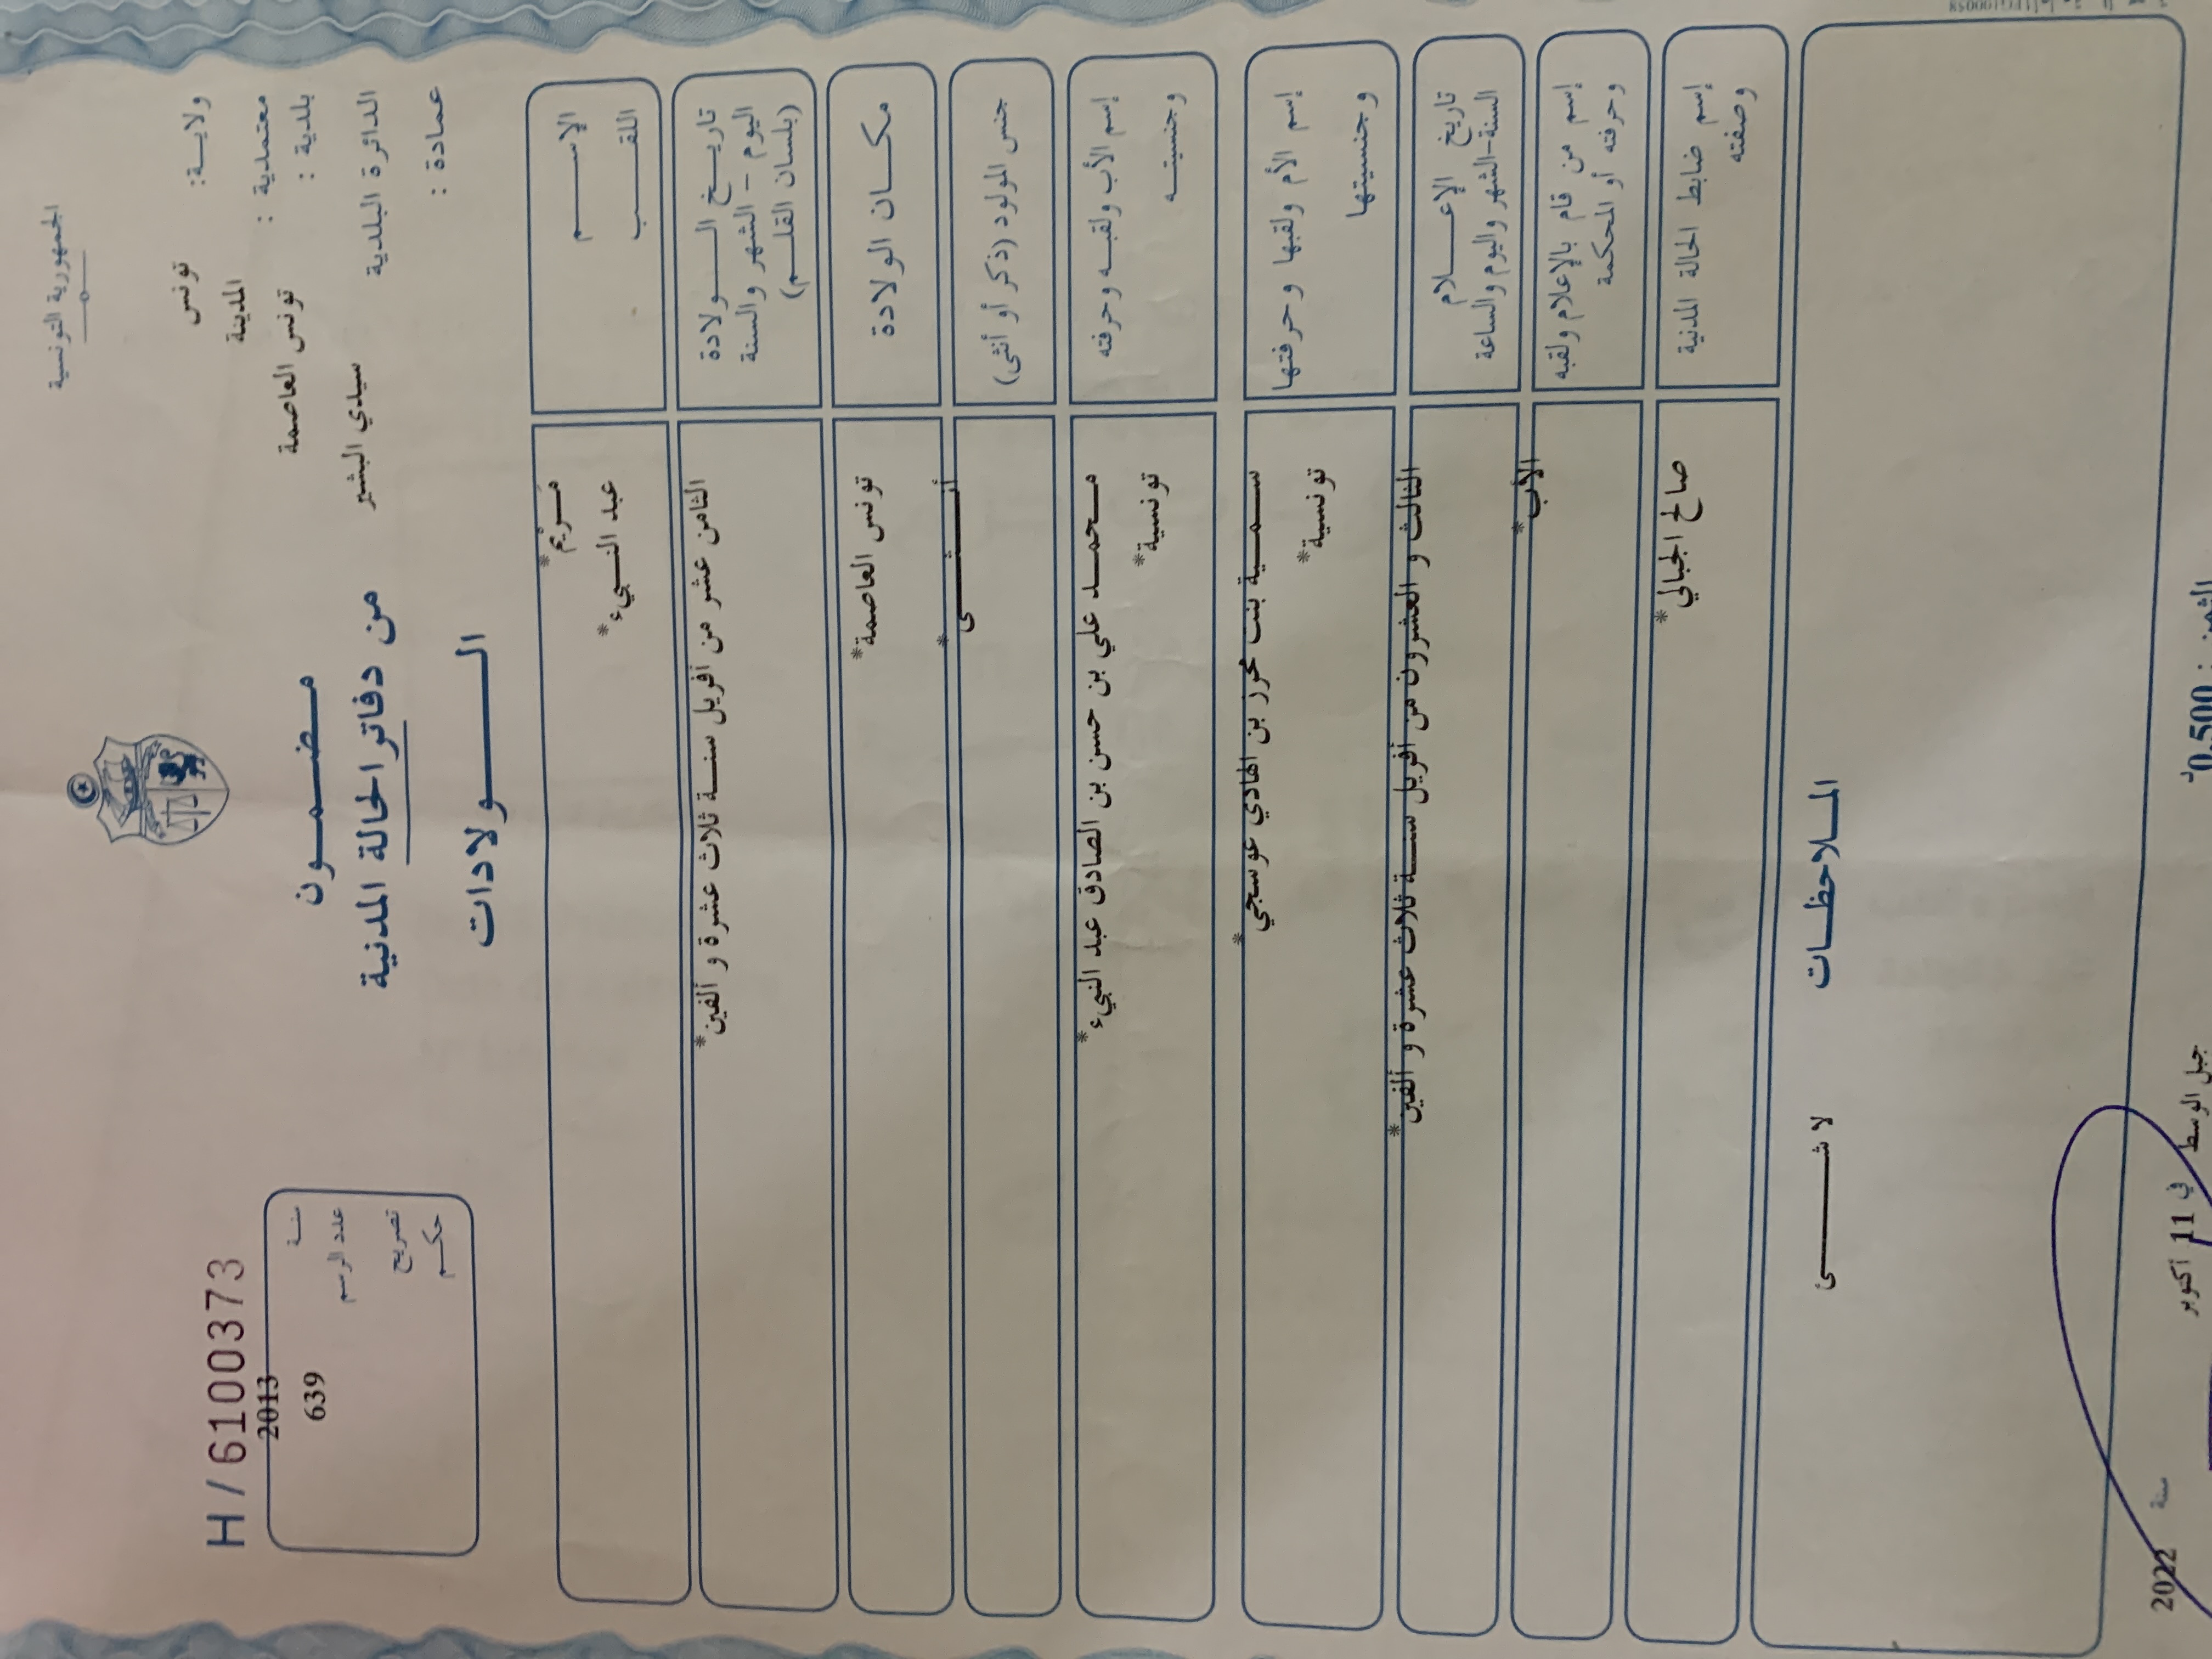 الجمهورية التونسية
ولاية: تونس
معتمدية : المدينة
بلدية : تونس العاصمة
الدائرة البلدية سيدي البشير
عمادة :
مضمون
من دفاتر الحالة المدنية
الولادات
H/6100373
سنة 2013
عدد الرسم 639
تصريح
حكم
الإسم مَرْيَم*
اللقب عبد النبيء*
تاريخ الولادة
اليوم - الشهر والسنة
(بلسان القلم)
الثامن عشر من أفريل سنة ثلاث عشرة و ألفين*
مكان الولادة تونس العاصمة*
جنس المولود (ذكر أو أنثى) أنثى*
إسم الأب ولقبه وحرفته محمد علي بن حسن بن الصادق عبد النبيء*
وجنسيته تونسية*
إسم الأم ولقبها وحرفتها سمية بنت محرز بن الهادي عوسجي*
وجنسيتها تونسية*
تاريخ الإعلام
السنة-الشهر واليوم والساعة
الثالث و العشرون من أفريل سنة ثلاث عشرة و ألفين*
إسم من قام بالإعلام ولقبه
وحرفته أو المحكمة
الأب*
إسم ضابط الحالة المدنية
وصفته
صالح الجبالي*
الملاحظات
لا شئ
جبل الوسط في 11 أكتوبر سنة 2022
الثمن : 0,500د